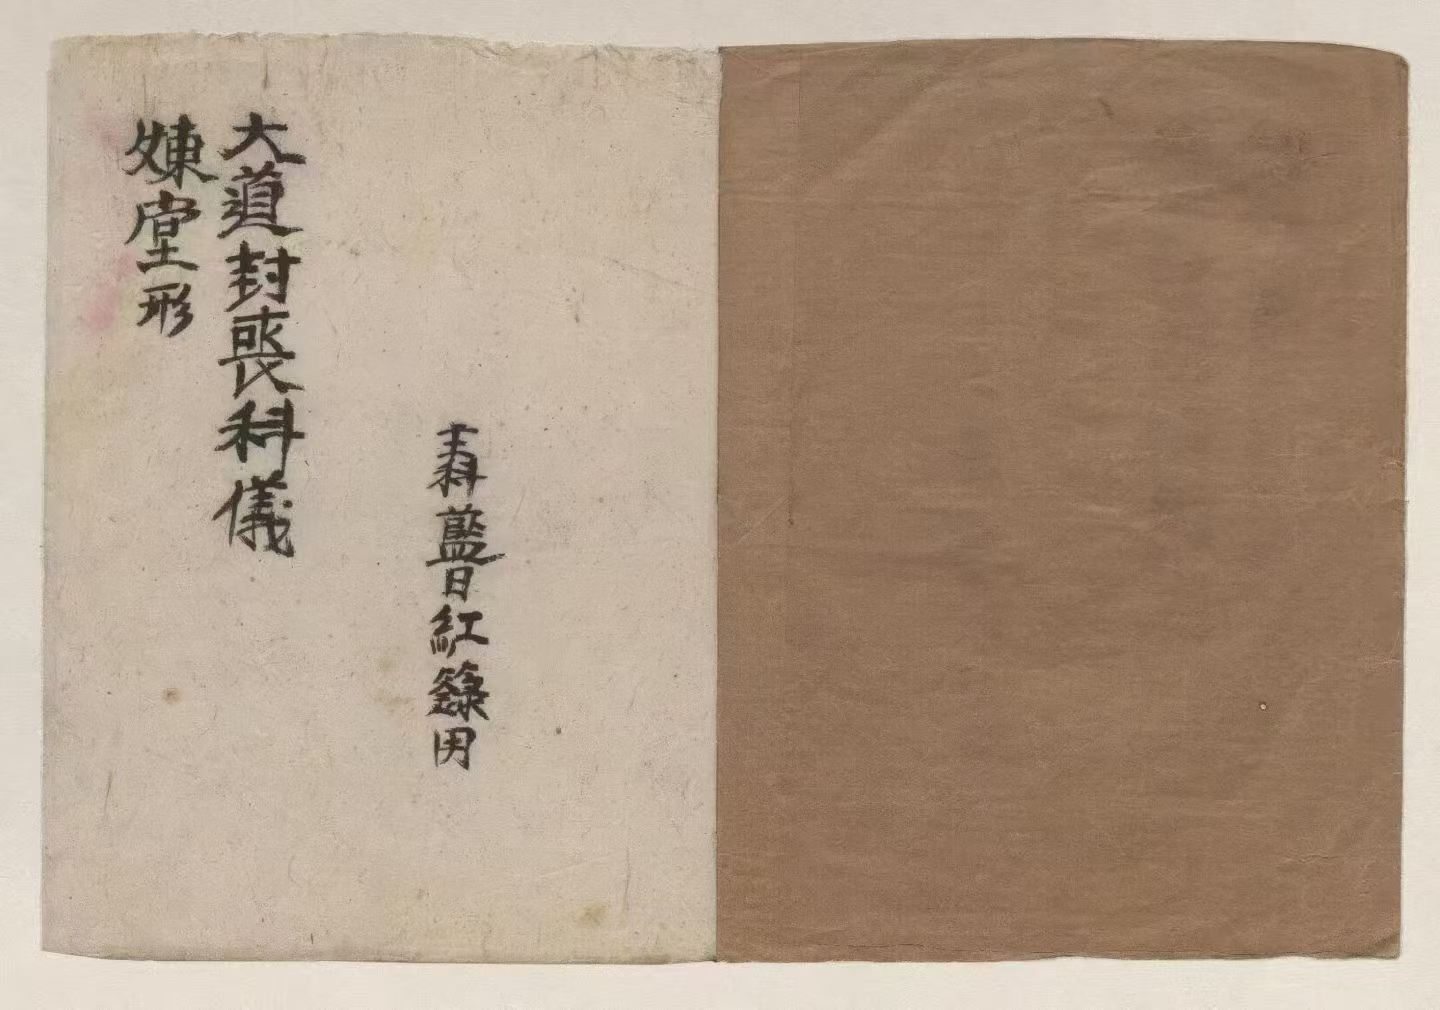 大道封喪科儀
堂形
藍日紅籙用